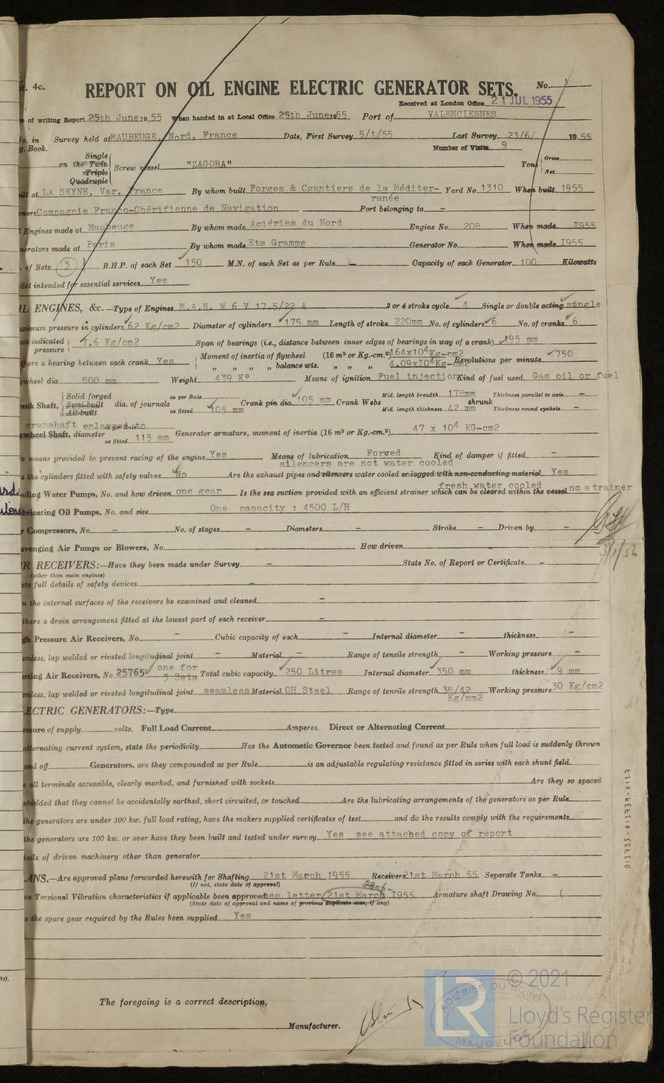 4c. REPORT ON OIL ENGINE ELECTRIC GENERATOR SETS. No.
Received at London Office 21 JUL 1955
of writing Report 25th June 1955 When handed in at Local Office 25th June 1955 Port of VALENCIENNES
in Survey held at MAUBEUGE, Nord, France Date, First Survey 5/1/55 Last Survey 23/6/ 1955
Book. Number of Visits 9
Single
on the Twin
Triple
Quadruple
Screw vessel "ZAGORA" Tons Gross Net
at LA SEYNE, Var, France By whom built Forges & Cgantiers de la Méditer-ranée Yard No 1310 When built 1955
Compagnie Franco-Chérifienne de Navigation Port belonging to -
Engines made at Maubeuge By whom made Aciéries du Nord Engine No. 208 When made I955
made at Paris By whom made Eta Gramme Generator No. When made I955
of Sets 3 B.H.P. of each Set 150 M.N. of each Set as per Rule Capacity of each Generator 100 Kilowatts
Set intended for essential services Yes
ENGINES, &c.—Type of Engines M.A.N. W 6 V 17.5/22 A 2 or 4 stroke cycle 4 Single or double acting single
pressure in cylinders 62 Kg/cm2 Diameter of cylinders 175 mm Length of stroke 220mm No. of cylinders 6 No. of cranks 6
indicated pressure 7.6 Kg/cm2 Span of bearings (i.e., distance between inner edges of bearings in way of a crank) 195 mm
there a bearing between each crank Yes Moment of inertia of flywheel (16 m² or Kg.-cm.²) 164x10⁴Kg-cm2 Revolutions per minute 750
" " " balance wts. " " " 4.09x10⁴Kg-cm2
dia 800 mm Weight 439 K° Means of ignition Fuel injection Kind of fuel used Gas oil or fuel
Shaft, Solid forged Semi-built All-built dia. of journals as per Rule as fitted 105 mm Crank pin dia 105 mm Crank Webs Mid. length breadth 178mm Thickness parallel to axis -
Mid. length thickness 42 mm shrunk Thickness round eyelets -
crankshaft enlarged to
Shaft, diameter as fitted 115 mm Generator armature, moment of inertia (16 m² or Kg.-cm.²) 47 x 10⁴ KG-cm2
means provided to prevent racing of the engine Yes Means of lubrication Forced Kind of damper if fitted -
silencers are not water cooled
the cylinders fitted with safety valves No Are the exhaust pipes and silencers water cooled or lagged with non-conducting material Yes
fresh water cooled
Water Pumps, No. and how driven one gear Is the sea suction provided with an efficient strainer which can be cleared within the vessel no strainer
Oil Pumps, No. and size One capacity : 4500 L/H
Compressors, No. - No. of stages - Diameters - Stroke - Driven by -
Air Pumps or Blowers, No. - How driven
RECEIVERS:—Have they been made under Survey - State No. of Report or Certificate -
(other than main engines)
full details of safety devices -
the internal surfaces of the receivers be examined and cleaned -
there a drain arrangement fitted at the lowest part of each receiver -
Pressure Air Receivers, No. - Cubic capacity of each - Internal diameter - thickness -
lap welded or riveted longitudinal joint - Material - Range of tensile strength - Working pressure -
Air Receivers, No. 25765 one for 3 Sets Total cubic capacity 250 Litres Internal diameter 350 mm thickness 9 mm
lap welded or riveted longitudinal joint seamless Material OH Steel Range of tensile strength 38/42 Kg/mm2 Working pressure 30 Kg/cm2
ELECTRIC GENERATORS:—Type
of supply volts. Full Load Current Amperes. Direct or Alternating Current
alternating current system, state the periodicity Has the Automatic Governor been tested and found as per Rule when full load is suddenly thrown
and off Generators, are they compounded as per Rule is an adjustable regulating resistance fitted in series with each shunt field
all terminals accessible, clearly marked, and furnished with sockets Are they so spaced
shielded that they cannot be accidentally earthed, short circuited, or touched Are the lubricating arrangements of the generators as per Rule
the generators are under 100 kw. full load rating, have the makers supplied certificates of test and do the results comply with the requirements
the generators are 100 kw. or over have they been built and tested under survey Yes see attached copy of report
of driven machinery other than generator
Are approved plans forwarded herewith for Shafting 21st March 1955 Receivers 21st March 55 Separate Tanks -
(If not, state date of approval)
Torsional Vibration characteristics if applicable been approved see letter 21st March 1955 Armature shaft Drawing No.
(State date of approval and name of previous duplicate case, if any)
the spare gear required by the Rules been supplied Yes
The foregoing is a correct description,
Manufacturer.
ACIERIES DU NORD
MAUBEUGE
011735-011739-0127
LR
© 2021
Lloyd's Register
Foundation